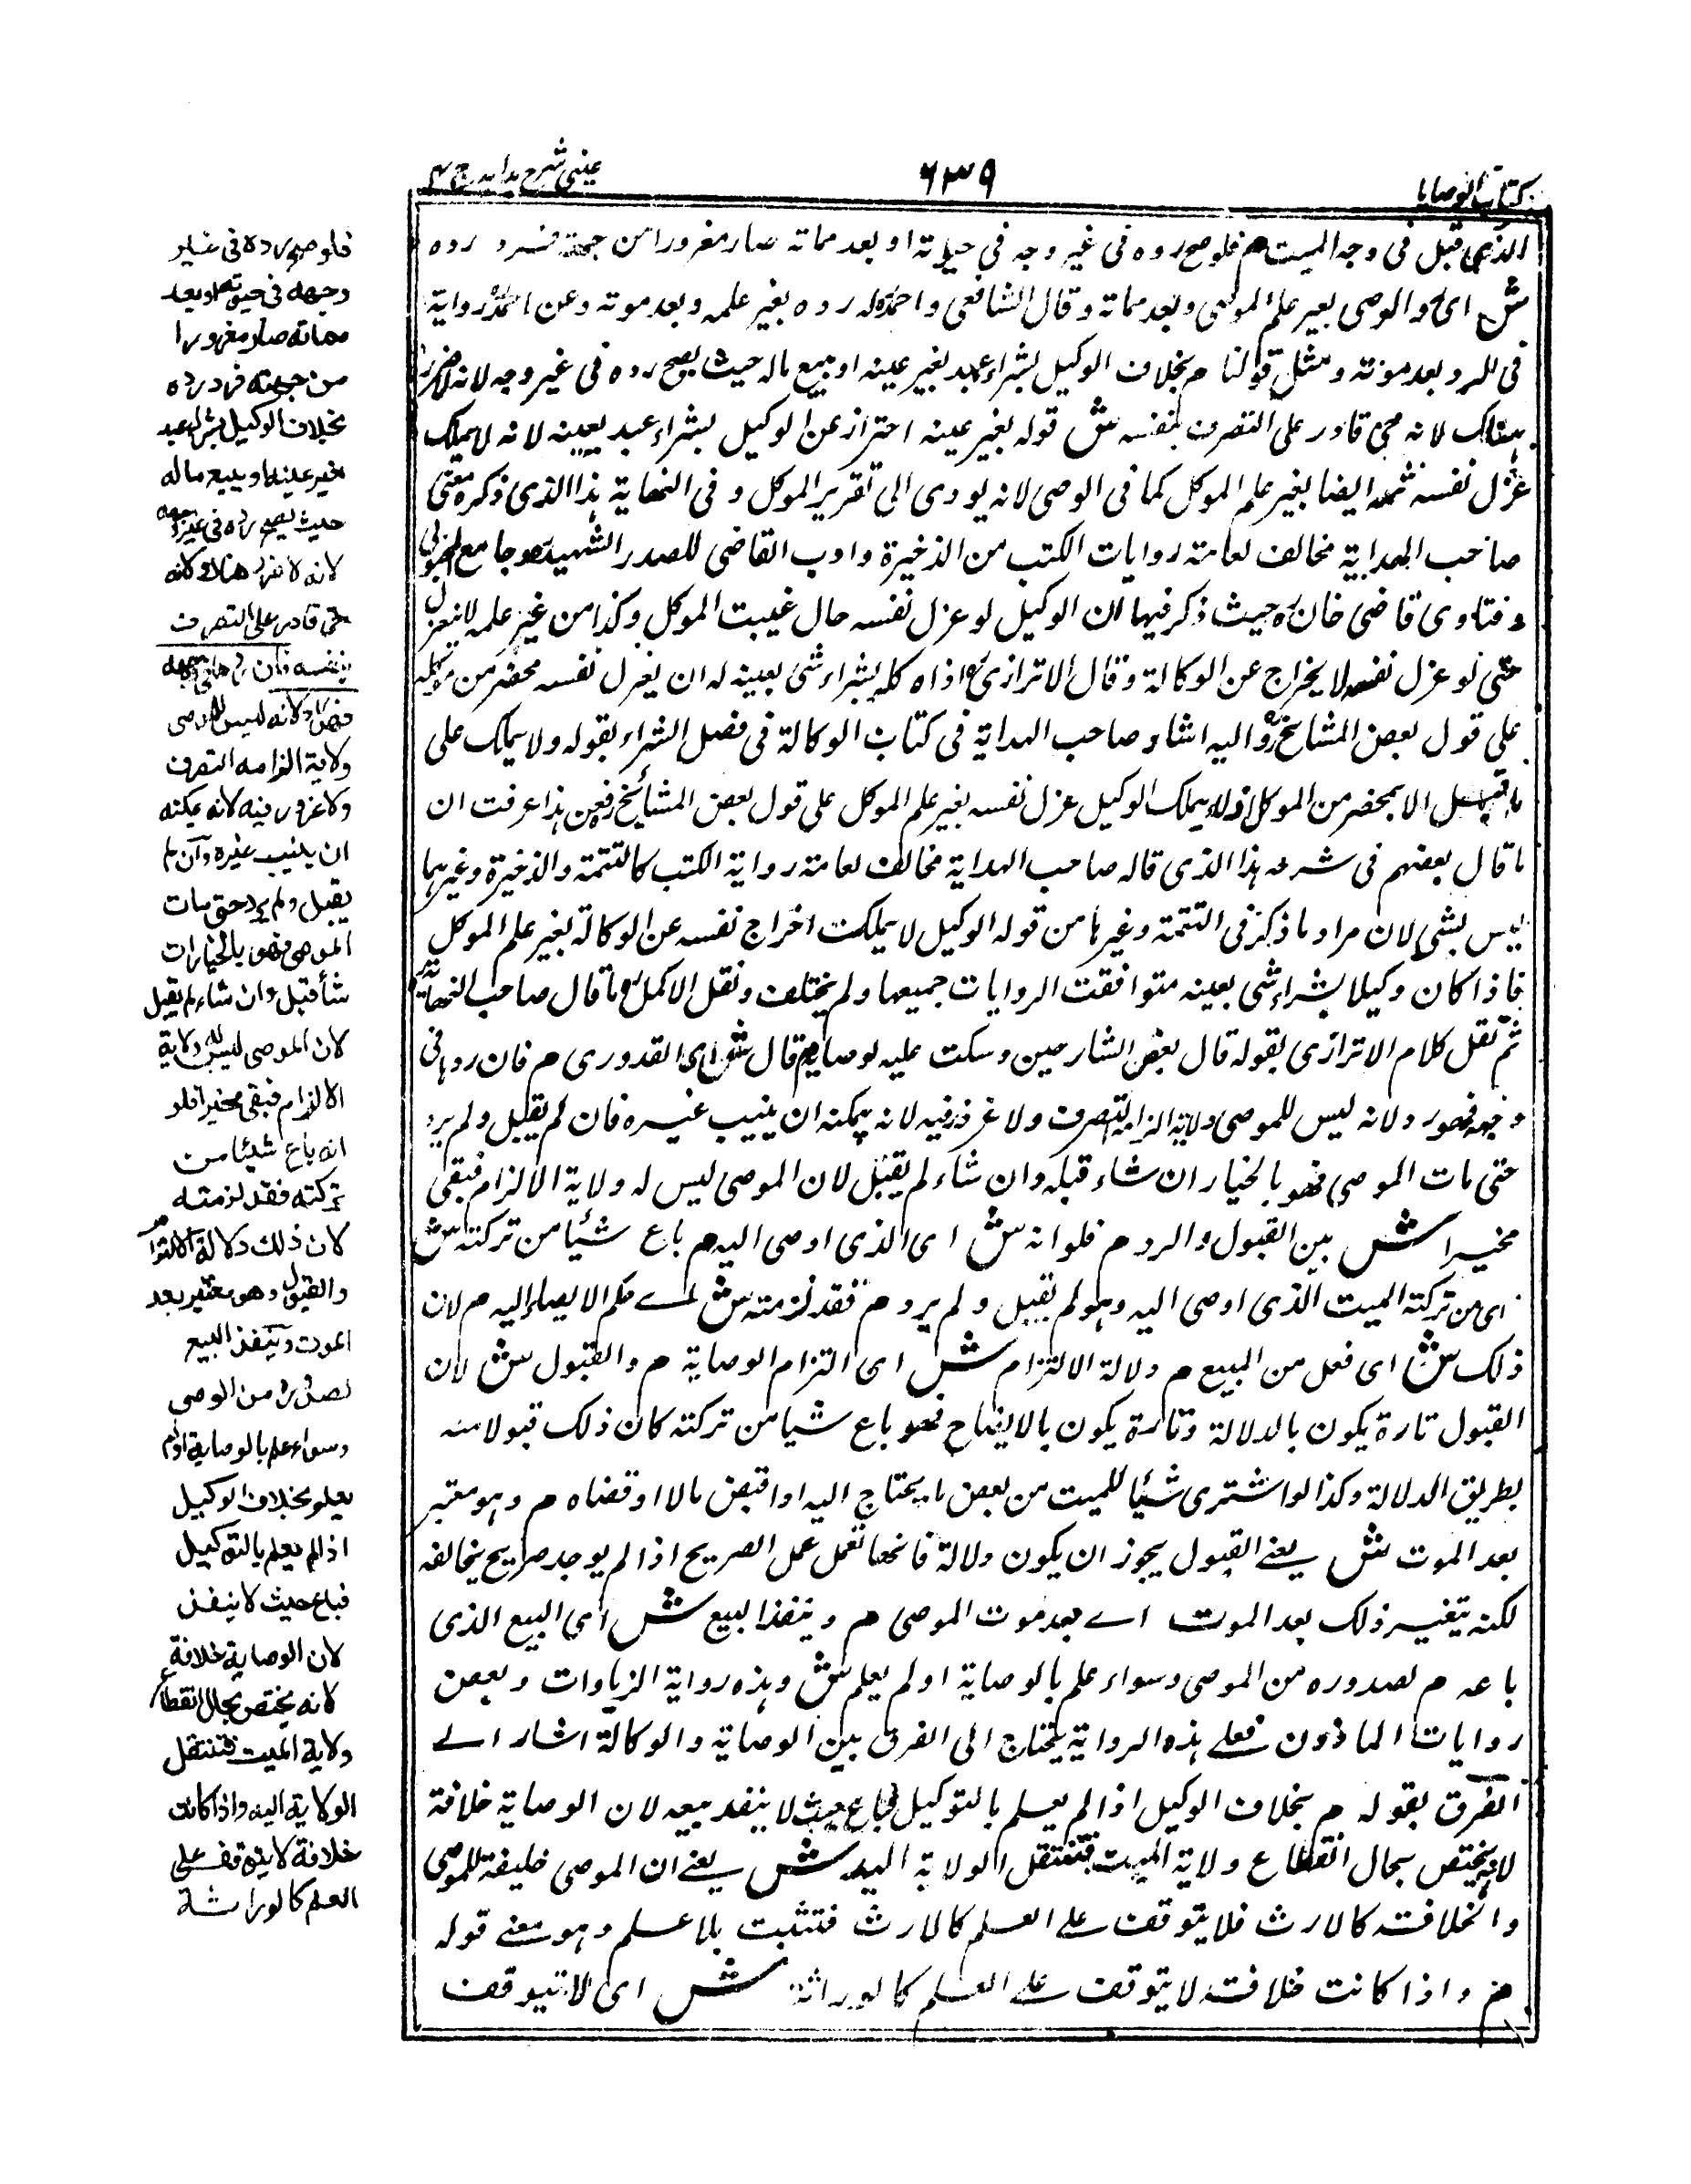 كتاب الوصايا
٦٣٩
عينى شرح هدايه ج ٤
الذى قبل فى وجه الميت م فلو صح رده فى غير وجهه فى حياته او بعد مماته صار مغرورا من جهته فيرد رده
ش اى رد الوصى بغير علم الموصى وبعد مماته وقال الشافعى واحمد له رده بغير علمه وبعد موته وعن احمد رواية
فى الرد بعد موته ومثل قولنا م بخلاف الوكيل بشراء عبد بغير عينه او ببيع ماله حيث يصح رده فى غير وجهه لانه لا ضرر
هناك لانه حى قادر على التصرف بنفسه ش قوله بغير عينه احتراز عن الوكيل بشراء عبد بعينه لانه لا يملك
عزل نفسه ثمه ايضا بغير علم الموكل كما فى الوصى لانه يودى الى تقرير الموكل وفى النهاية هذا الذى ذكره معنى
صاحب الهداية مخالف لعامة روايات الكتب من الذخيرة وادب القاضى للصدر الشهيد وجامع المحبوبى
وفتاوى قاضى خان حيث ذكر فيها ان الوكيل لو عزل نفسه حال غيبت الموكل وكذا من غير علمه لا ينعزل
حتى لو عزل نفسه لا يخراج عن الوكالة وقال الاترازى اذا وكله بشراء شئ بعينه له ان يعزل نفسه بمحضر من موكله
على قول بعض المشايخ واليه اشار صاحب الهداية فى كتاب الوكالة فى فصل الشراء بقوله ولا يملك على
ما قيل الا بمحضر من الموكل اذ لا يملك الوكيل عزل نفسه بغير علم الموكل على قول بعض المشائخ فعن هذا عرفت ان
ما قال بعضهم فى شرحه هذا الذى قاله صاحب الهداية مخالف لعامة رواية الكتب كالتتمة والذخيرة وغيرهما
ليس بشئ لان مراد ما ذكر فى التتمة وغيرها من قوله الوكيل لا يملك اخراج نفسه عن الوكالة بغير علم الموكل
فاذا كان وكيلا بشراء شئ بعينه متوافقت الروايات جميعها ولم يختلف ونقل الاكمل ما قال صاحب النهاية
ثم نقل كلام الاترازى بقوله قال بعض الشارحين وسكت عليه لوصايم قال ش اى القدورى م فان ردها فى
وجهه فهو رد ولانه ليس للموصى ولاية الزامه التصرف ولا غرر فيه لانه يمكنه ان ينيب غيره فان لم يقبل ولم يرد
حتى مات الموصى فهو بالخيار ان شاء قبله وان شاء لم يقبل لان الموصى ليس له ولاية الالزام فبقى
مخيرا ش بين القبول والرد م فلو انه ش اى الذى اوصى اليه م باع شيئا من تركته ش
اى من تركته الميت الذى اوصى اليه وهو لم يقبل ولم يرد م فقد لزمته ش اے حكم الايصاء اليه م لان
ذلك ش اى فعل من المبيع م دلالة الالتزام ش اى التزام الوصاية م والقبول ش لان
القبول تارة يكون بالدلالة وتارة يكون بالايضاح فهو باع شيا من تركته كان ذلك قبولا منه
بطريق الدلالة وكذا لو اشترى شيئا للميت من بعض ما يحتاج اليه او اقتبض مالا او قضاه م وهو معتبر
بعد الموت ش يعنے القبول يجوز ان يكون دلالة فانها تعمل عمل الصريح اذا لم يوجد صريح يخالفه
لكنه يتغير ذلك بعد الموت اے بعد موت الموصى م وينفذ البيع ش اى البيع الذى
باعه م لصدوره من الموصى وسواء علم بالوصاية او لم يعلم ش وهذه رواية الزيادات وبعض
روايات الماذون فعلے هذه الرواية يحتاج الى الفرق بين الوصاية والوكالة اشار الے
الفرق بقوله م بخلاف الوكيل اذا لم يعلم بالتوكيل فباع حيث لا ينفد بيعه لان الوصاية خلافة
لانه يختص بحال انقطاع ولاية الميت فتنتقل الولاية اليه ش يعنے ان الموصى خليفة للموصى
والخلافة كالارث فلا يتوقف علے العلم كالارث فتثبت بلا علم وهو معنے قوله
م واذا كانت خلافة لا يتوقف علے العلم كالوراثة ش اى لا تيوقف
فلو صح رده فى غير
وجهه فى حيوته او بعد
مماته صار مغرورا
من جهته فرد رده
بخلاف الوكيل بشراء عبد
بغير عينه او ببيع ماله
حيث يصح رده فى غير وجهه
لانه لا ضرر هناك لانه
حى قادر على التصرف
بنفسه فان ردها فى وجهه
فهو رد لانه ليس للموصى
ولاية الزامه التصرف
ولا غرور فيه لانه يمكنه
ان ينيب غيره وان لم
يقبل ولم يرد حتى مات
الموصى فهو بالخيار ان
شاء قبل وان شاء لم يقبل
لان الموصى ليس له ولاية
الالزام فبقى مخيرا فلو
انه باع شيئا من
تركته فقد لزمته
لان ذلك دلالة الالتزام
والقبول وهو معتبر بعد
الموت وينفذ البيع
لصدوره من الوصى
وسواء علم بالوصاية او لم
يعلم بخلاف الوكيل
اذا لم يعلم بالتوكيل
فباع حيث لا ينفذ
لان الوصاية خلافة
لانه يختص بحال انقطاع
ولاية الميت فتنتقل
الولاية اليه واذا كانت
خلافة لا يتوقف على
العلم كالوراثة